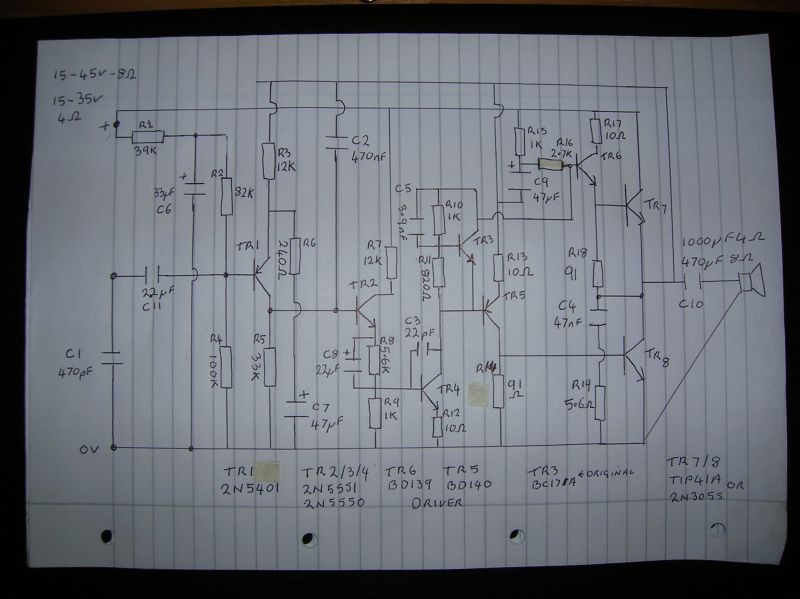 15-45V-8Ω
15-35V
4Ω
+
R1
39K
33µF
C6
R2
82K
R3
12K
C2
470nF
R6
240Ω
TR1
22µF
C11
C1
470pF
R4
100K
R5
33K
C7
47µF
+
0V
R7
12K
TR2
C8
22µF
R8
5.6K
R9
1K
C3
22pF
C5
3.9nF
R10
1K
R11
820Ω
TR3
TR4
R12
10Ω
R15
1K
R16
2.7K
C9
47µF
R13
10Ω
TR5
R14
91
Ω
R17
10Ω
TR6
TR7
R18
91
C4
47nF
R19
5.6Ω
TR8
1000µF 4Ω
470µF 8Ω
C10
TR1
2N5401
TR2/3/4
2N5551
2N5550
TR6
BD139
TR5
BD140
DRIVER
TR3
BC171A
←ORIGINAL
TR7/8
TIP41A OR
2N3055